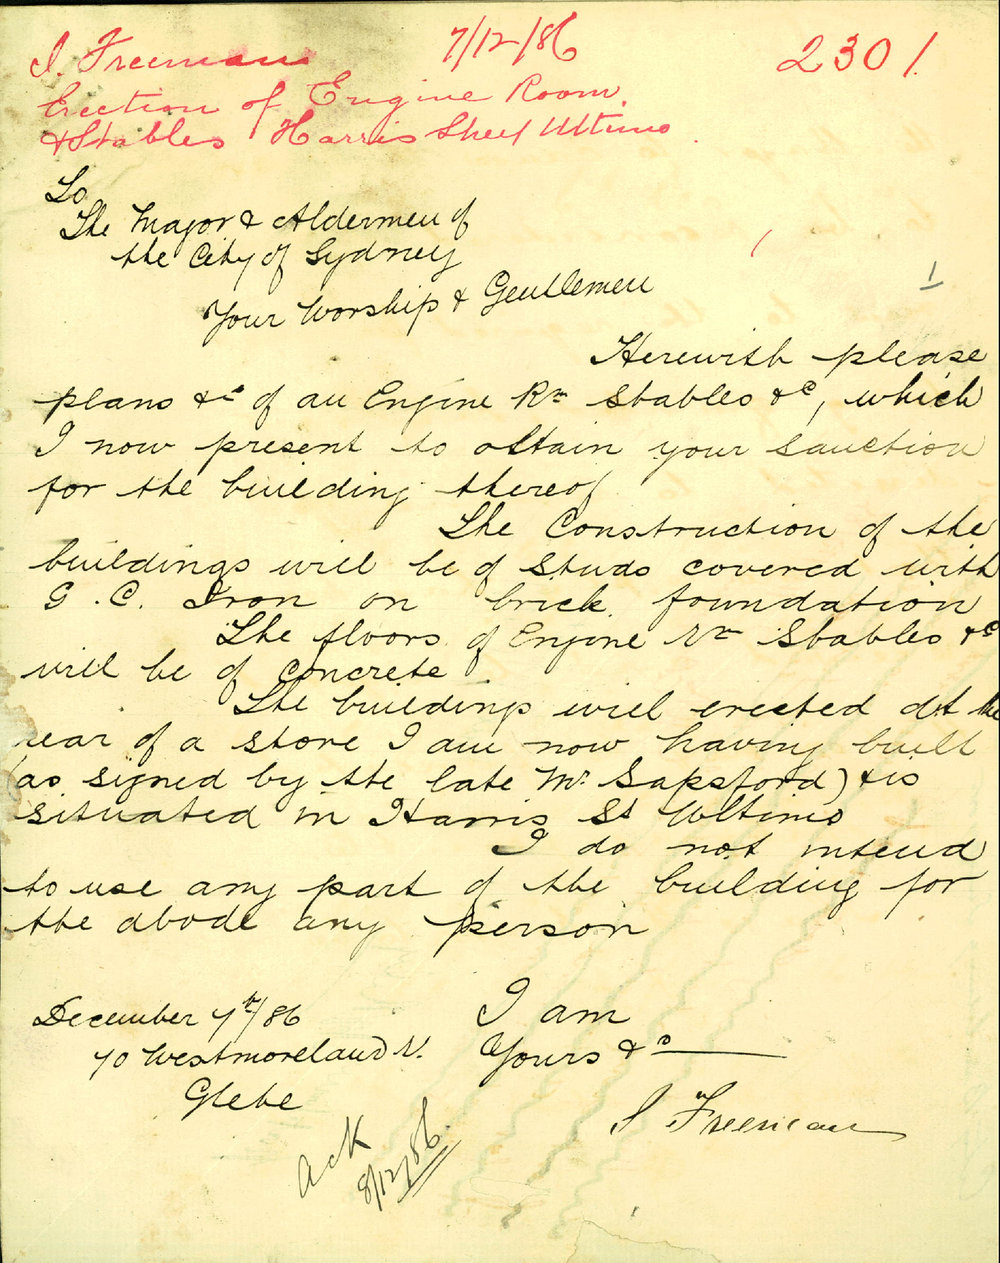 I. Freeman 7/12/86 2301.
Erection of Engine Room.
& Stables Harris Street Ultimo.
To
The Mayor & Aldermen of
the City of Sydney
Your Worship & Gentlemen
Herewith please
plans &c of an Engine Rm Stables &c, which
I now present to obtain your sanction
for the building thereof
The Construction of the
buildings will be of studs covered with
G. C. Iron on brick foundation
The floors of Engine Rm Stables &c
will be of Concrete.
The buildings will erected at the
rear of a store I am now having built
(as signed by the late Mr Sapsford) & is
situated in Harris St Ultimo
I do not intend
to use any part of the building for
the abode any person
December 7th/86 I am
70 Westmoreland St. Yours &c
Glebe
I Freeman
Ack
8/12/86.